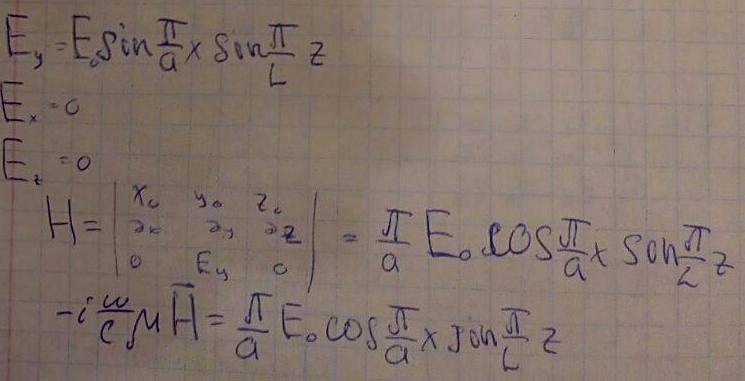 E_y = E_0 sin π/a x sin π/L z
E_x = 0
E_z = 0
H = | x_0 y_0 z_0 ; ∂x ∂y ∂z ; 0 E_y 0 | = π/a E_0 cos π/a x sin π/L z
-i ω/c μ H̅ = π/a E_0 cos π/a x sin π/L z